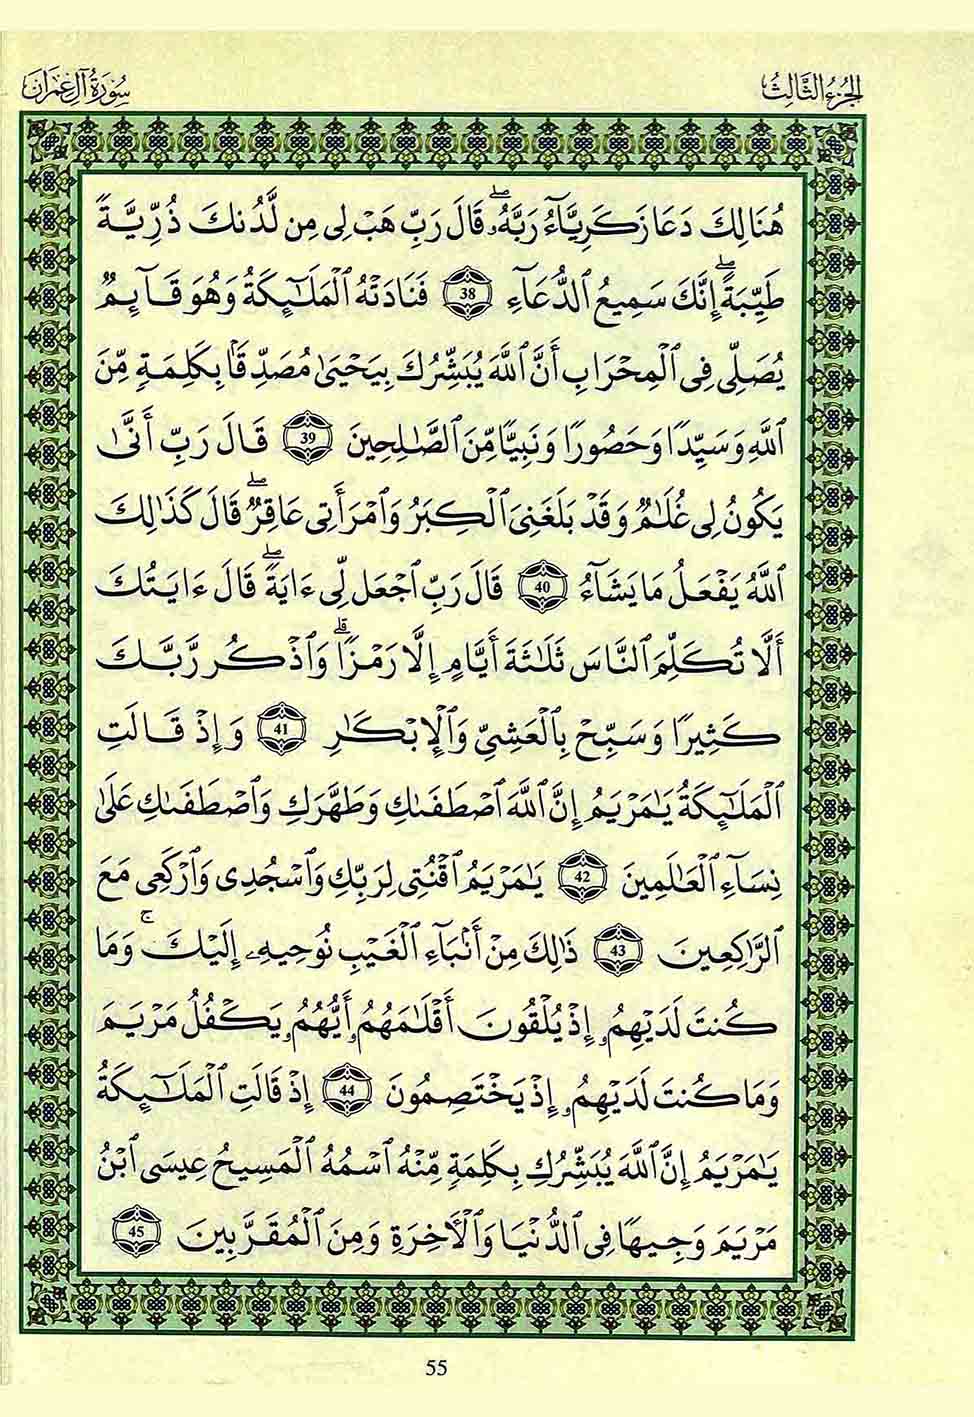 الجزء الثالث
سورة آل عمران
هُنَالِكَ دَعَا زَكَرِيَّآءُ رَبَّهُۥۖ قَالَ رَبِّ هَبْ لِى مِن لَّدُنكَ ذُرِّيَّةً
طَيِّبَةًۖ إِنَّكَ سَمِيعُ ٱلدُّعَآءِ 38 فَنَادَتْهُ ٱلْمَلَٰٓئِكَةُ وَهُوَ قَآئِمٌ
يُصَلِّى فِى ٱلْمِحْرَابِ أَنَّ ٱللَّهَ يُبَشِّرُكَ بِيَحْيَىٰ مُصَدِّقًۢا بِكَلِمَةٍ مِّنَ
ٱللَّهِ وَسَيِّدًا وَحَصُورًا وَنَبِيًّا مِّنَ ٱلصَّٰلِحِينَ 39 قَالَ رَبِّ أَنَّىٰ
يَكُونُ لِى غُلَٰمٌ وَقَدْ بَلَغَنِىَ ٱلْكِبَرُ وَٱمْرَأَتِى عَاقِرٌۖ قَالَ كَذَٰلِكَ
ٱللَّهُ يَفْعَلُ مَا يَشَآءُ 40 قَالَ رَبِّ ٱجْعَل لِّى ءَايَةًۖ قَالَ ءَايَتُكَ
أَلَّا تُكَلِّمَ ٱلنَّاسَ ثَلَٰثَةَ أَيَّامٍ إِلَّا رَمْزًاۗ وَٱذْكُر رَّبَّكَ
كَثِيرًا وَسَبِّحْ بِٱلْعَشِىِّ وَٱلْإِبْكَٰرِ 41 وَإِذْ قَالَتِ
ٱلْمَلَٰٓئِكَةُ يَٰمَرْيَمُ إِنَّ ٱللَّهَ ٱصْطَفَىٰكِ وَطَهَّرَكِ وَٱصْطَفَىٰكِ عَلَىٰ
نِسَآءِ ٱلْعَٰلَمِينَ 42 يَٰمَرْيَمُ ٱقْنُتِى لِرَبِّكِ وَٱسْجُدِى وَٱرْكَعِى مَعَ
ٱلرَّٰكِعِينَ 43 ذَٰلِكَ مِنْ أَنۢبَآءِ ٱلْغَيْبِ نُوحِيهِ إِلَيْكَۚ وَمَا
كُنتَ لَدَيْهِمُۥ إِذْ يُلْقُونَ أَقْلَٰمَهُمُۥ أَيُّهُمُۥ يَكْفُلُ مَرْيَمَ
وَمَا كُنتَ لَدَيْهِمُۥ إِذْ يَخْتَصِمُونَ 44 إِذْ قَالَتِ ٱلْمَلَٰٓئِكَةُ
يَٰمَرْيَمُ إِنَّ ٱللَّهَ يُبَشِّرُكِ بِكَلِمَةٍ مِّنْهُ ٱسْمُهُ ٱلْمَسِيحُ عِيسَى ٱبْنُ
مَرْيَمَ وَجِيهًا فِى ٱلدُّنْيَا وَٱلْءَاخِرَةِ وَمِنَ ٱلْمُقَرَّبِينَ 45
55